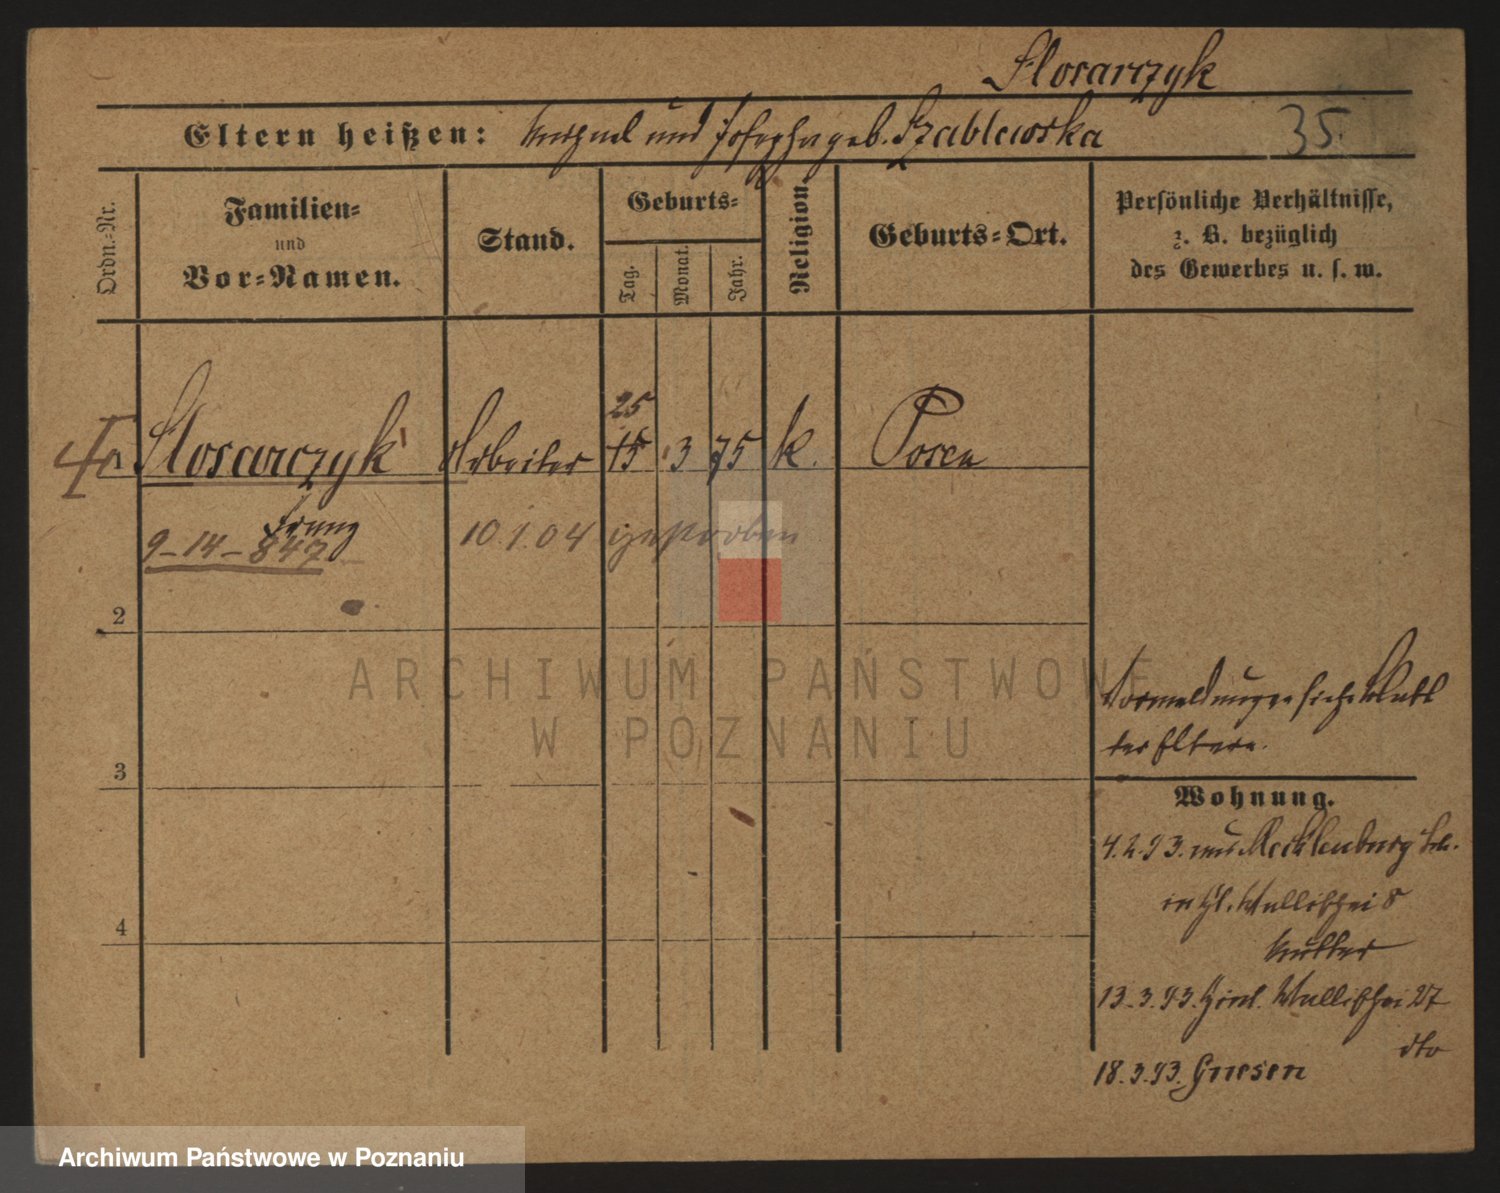 Slosarczyk
Eltern heißen: Michael und Josepha geb. Szablewska
35.
Ordn.=Nr.
Familien=
und
Vor=Namen.
Stand.
Geburts=
Tag.
Monat.
Jahr.
Religion.
Geburts=Ort.
Persönliche Verhältnisse,
z. B. bezüglich
des Gewerbes u. s. w.
25
1 Slosarczyk Arbeiter 15 3 75 k. Posen
Franz
9-14-847 10.1.04 gestorben
2
Vormeldungen siehe Blatt
der Eltern.
3
Wohnung.
4.2.93. aus Mecklenburg
in Hl. Wallischei 8
Mutter
4
13.3.93. Hint. Wallischei 27
dto
18.3.93. Gnesen
ARCHIWUM PAŃSTWOWE
W POZNANIU
Archiwum Państwowe w Poznaniu